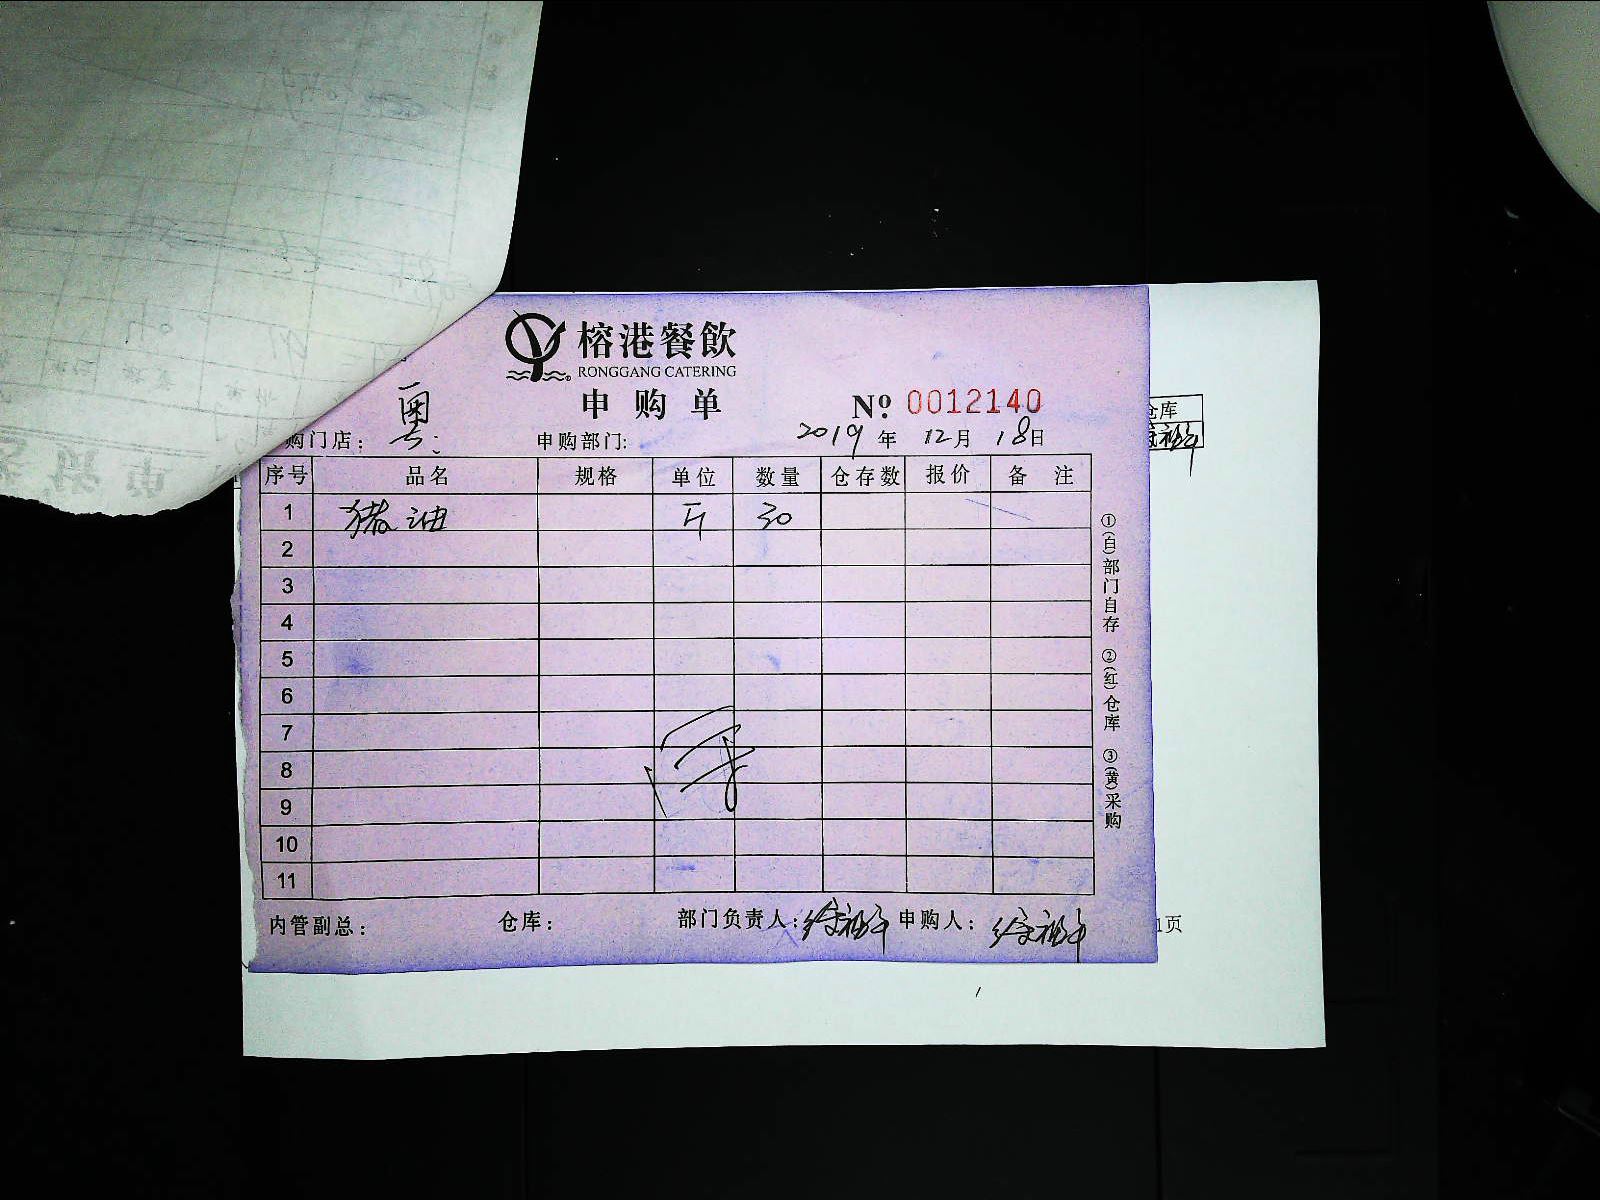 榕港餐飲
RONGGANG CATERING
申购单 Nº 0012140
购门店: 粤 申购部门: 2019年12月18日
序号 品名 规格 单位 数量 仓存数 报价 备注
1 猪油 斤 30
2
3
4
5
6
7
8
9
10
11
内管副总: 仓库: 部门负责人: 申购人:
①(白)部门自存 ②(红)仓库 ③(黄)采购
仓库
1页